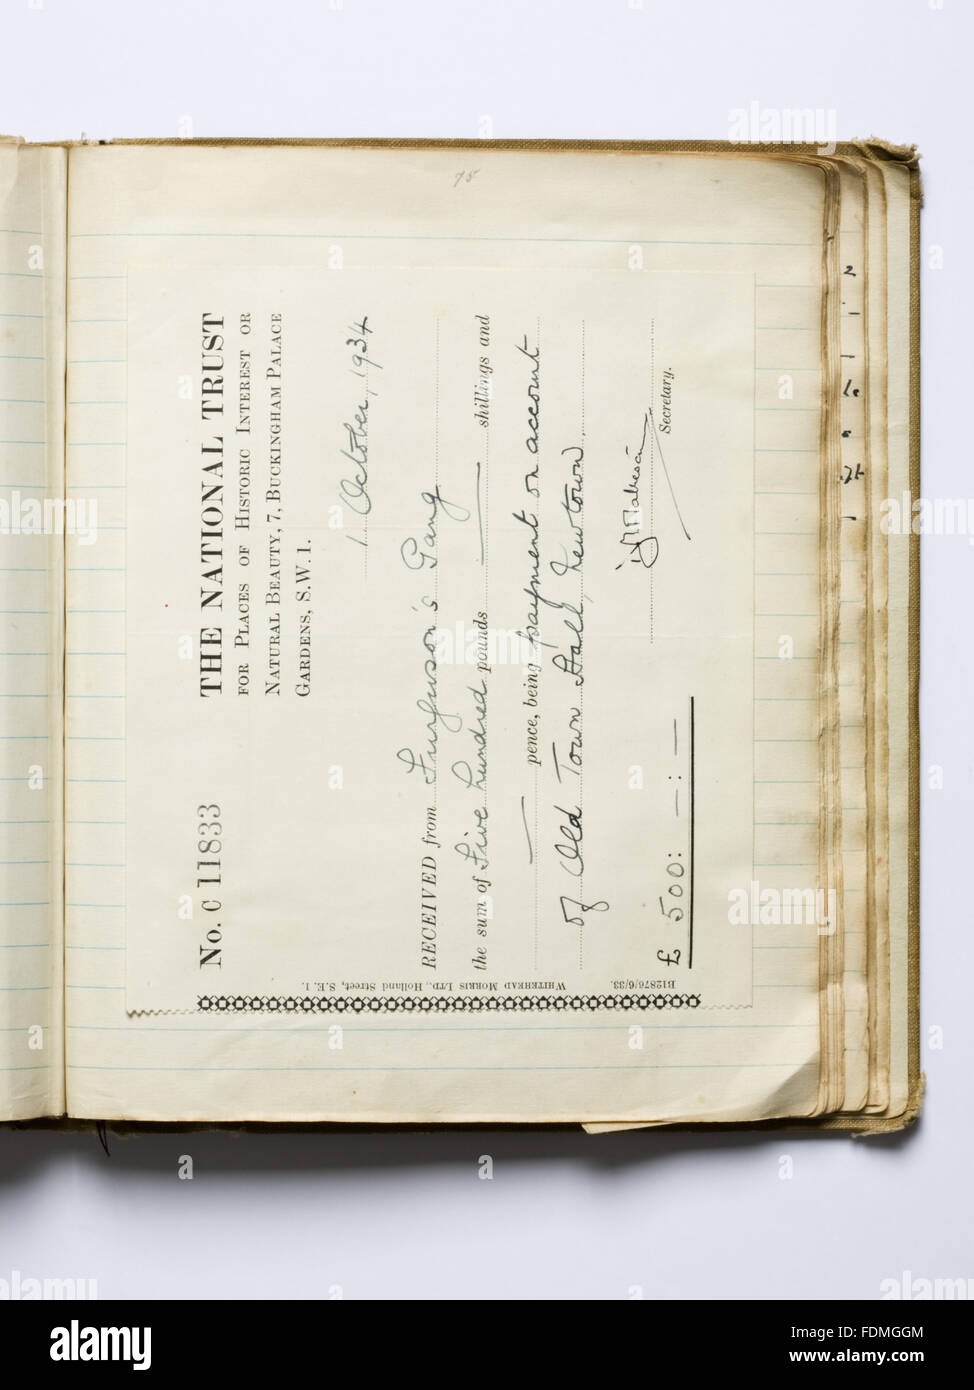 75
No. C 11833
THE NATIONAL TRUST
FOR PLACES OF HISTORIC INTEREST OR
NATURAL BEAUTY, 7, BUCKINGHAM PALACE
GARDENS, S.W.1.
1 October, 1934
RECEIVED from Furguson's Gang
the sum of Five hundred pounds — shillings and
— pence, being payment on account
of Old Town Hall, Newtown.
£ 500: —: —
Secretary.
WHITEHEAD MORRIS LTD., Holland Street, S.E.1.
B12876/6/33.
alamy
alamy
Image ID: FDMGGM
www.alamy.com